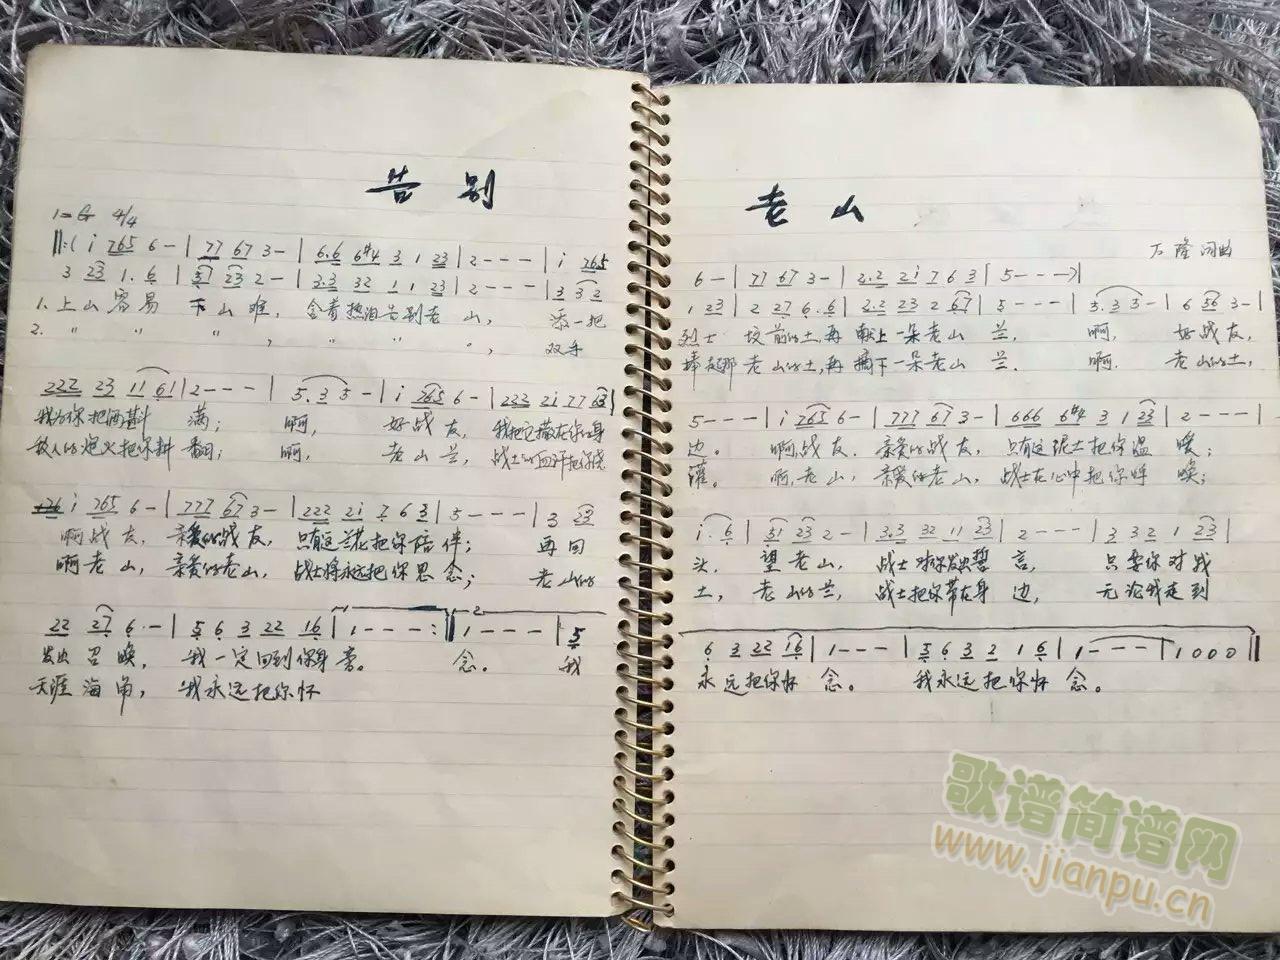 告别 老山
1=G 4/4
万隆 词曲
‖:( i 765 6 - | 77 67 3 - | 6.6 6#4 3 1 23 | 2 - - - | i 765
6 - | 77 67 3 - | 2.2 2i 7 6 3 | 5 - - - ) |
3 23 1. 6 | 37 23 2 - | 2.3 32 1 1 23 | 2 - - - | 3 3 2
1 23 | 2 27 6. 6 | 2.2 23 2 67 | 5 - - - | 3. 3 5 - | 6 56 3 - |
1. 上山容易 下山难, 含着热泪告别老 山, 添一把
烈士 坟前的土,再 献上一朵老山 兰, 啊, 好战友,
2. 〃 〃 〃 , 〃 〃 〃 , 双手
捧起那 老山的土,再 摘下一朵老山 兰. 啊. 老山的土,
222 23 11 61 | 2 - - - | 5. 3 5 - | i 765 6 - | 222 2i 77 63 |
5 - - - | i 765 6 - | 777 67 3 - | 666 6#4 3 1 23 | 2 - - - |
我为你把酒斟 满; 啊, 好战 友, 我把它撒在你的身
边。 啊,战友. 亲爱的战友, 只有这泥土把你温 暖;
敌人的炮火把你耕 翻; 啊, 老山兰, 战士的血汗把你浇
灌。 啊,老山, 亲爱的老山, 战士在心中把你呼 唤;
i 765 6 - | 777 67 3 - | 222 2i 7 6 3 | 5 - - - | 3 23
i. 6 | 31 23 2 - | 3.3 32 11 23 | 2 - - - | 3 3 2 1 23 |
啊战友, 亲爱的战友, 只有这兰花把你陪 伴; 再回
头, 望老山, 战士对你发出誓 言, 只要你对我
啊老山, 亲爱的老山, 战士将永远把你思 念; 老山的
土, 老山的兰, 战士把你带在身 边, 无论我走到
22 27 6. - | 5 6 3 22 16 | 1 - - - :‖ 1 - - - | 5
6 3 22 16 | 1 - - - | 5 6 3 2 1 6 | 1 - - - | 1 0 0 0 ‖
发出召唤, 我一定回到你身旁。 念。 我
永远把你怀 念。 我永远把你怀 念。
天涯海角, 我永远把你怀
歌谱简谱网
www.jianpu.cn